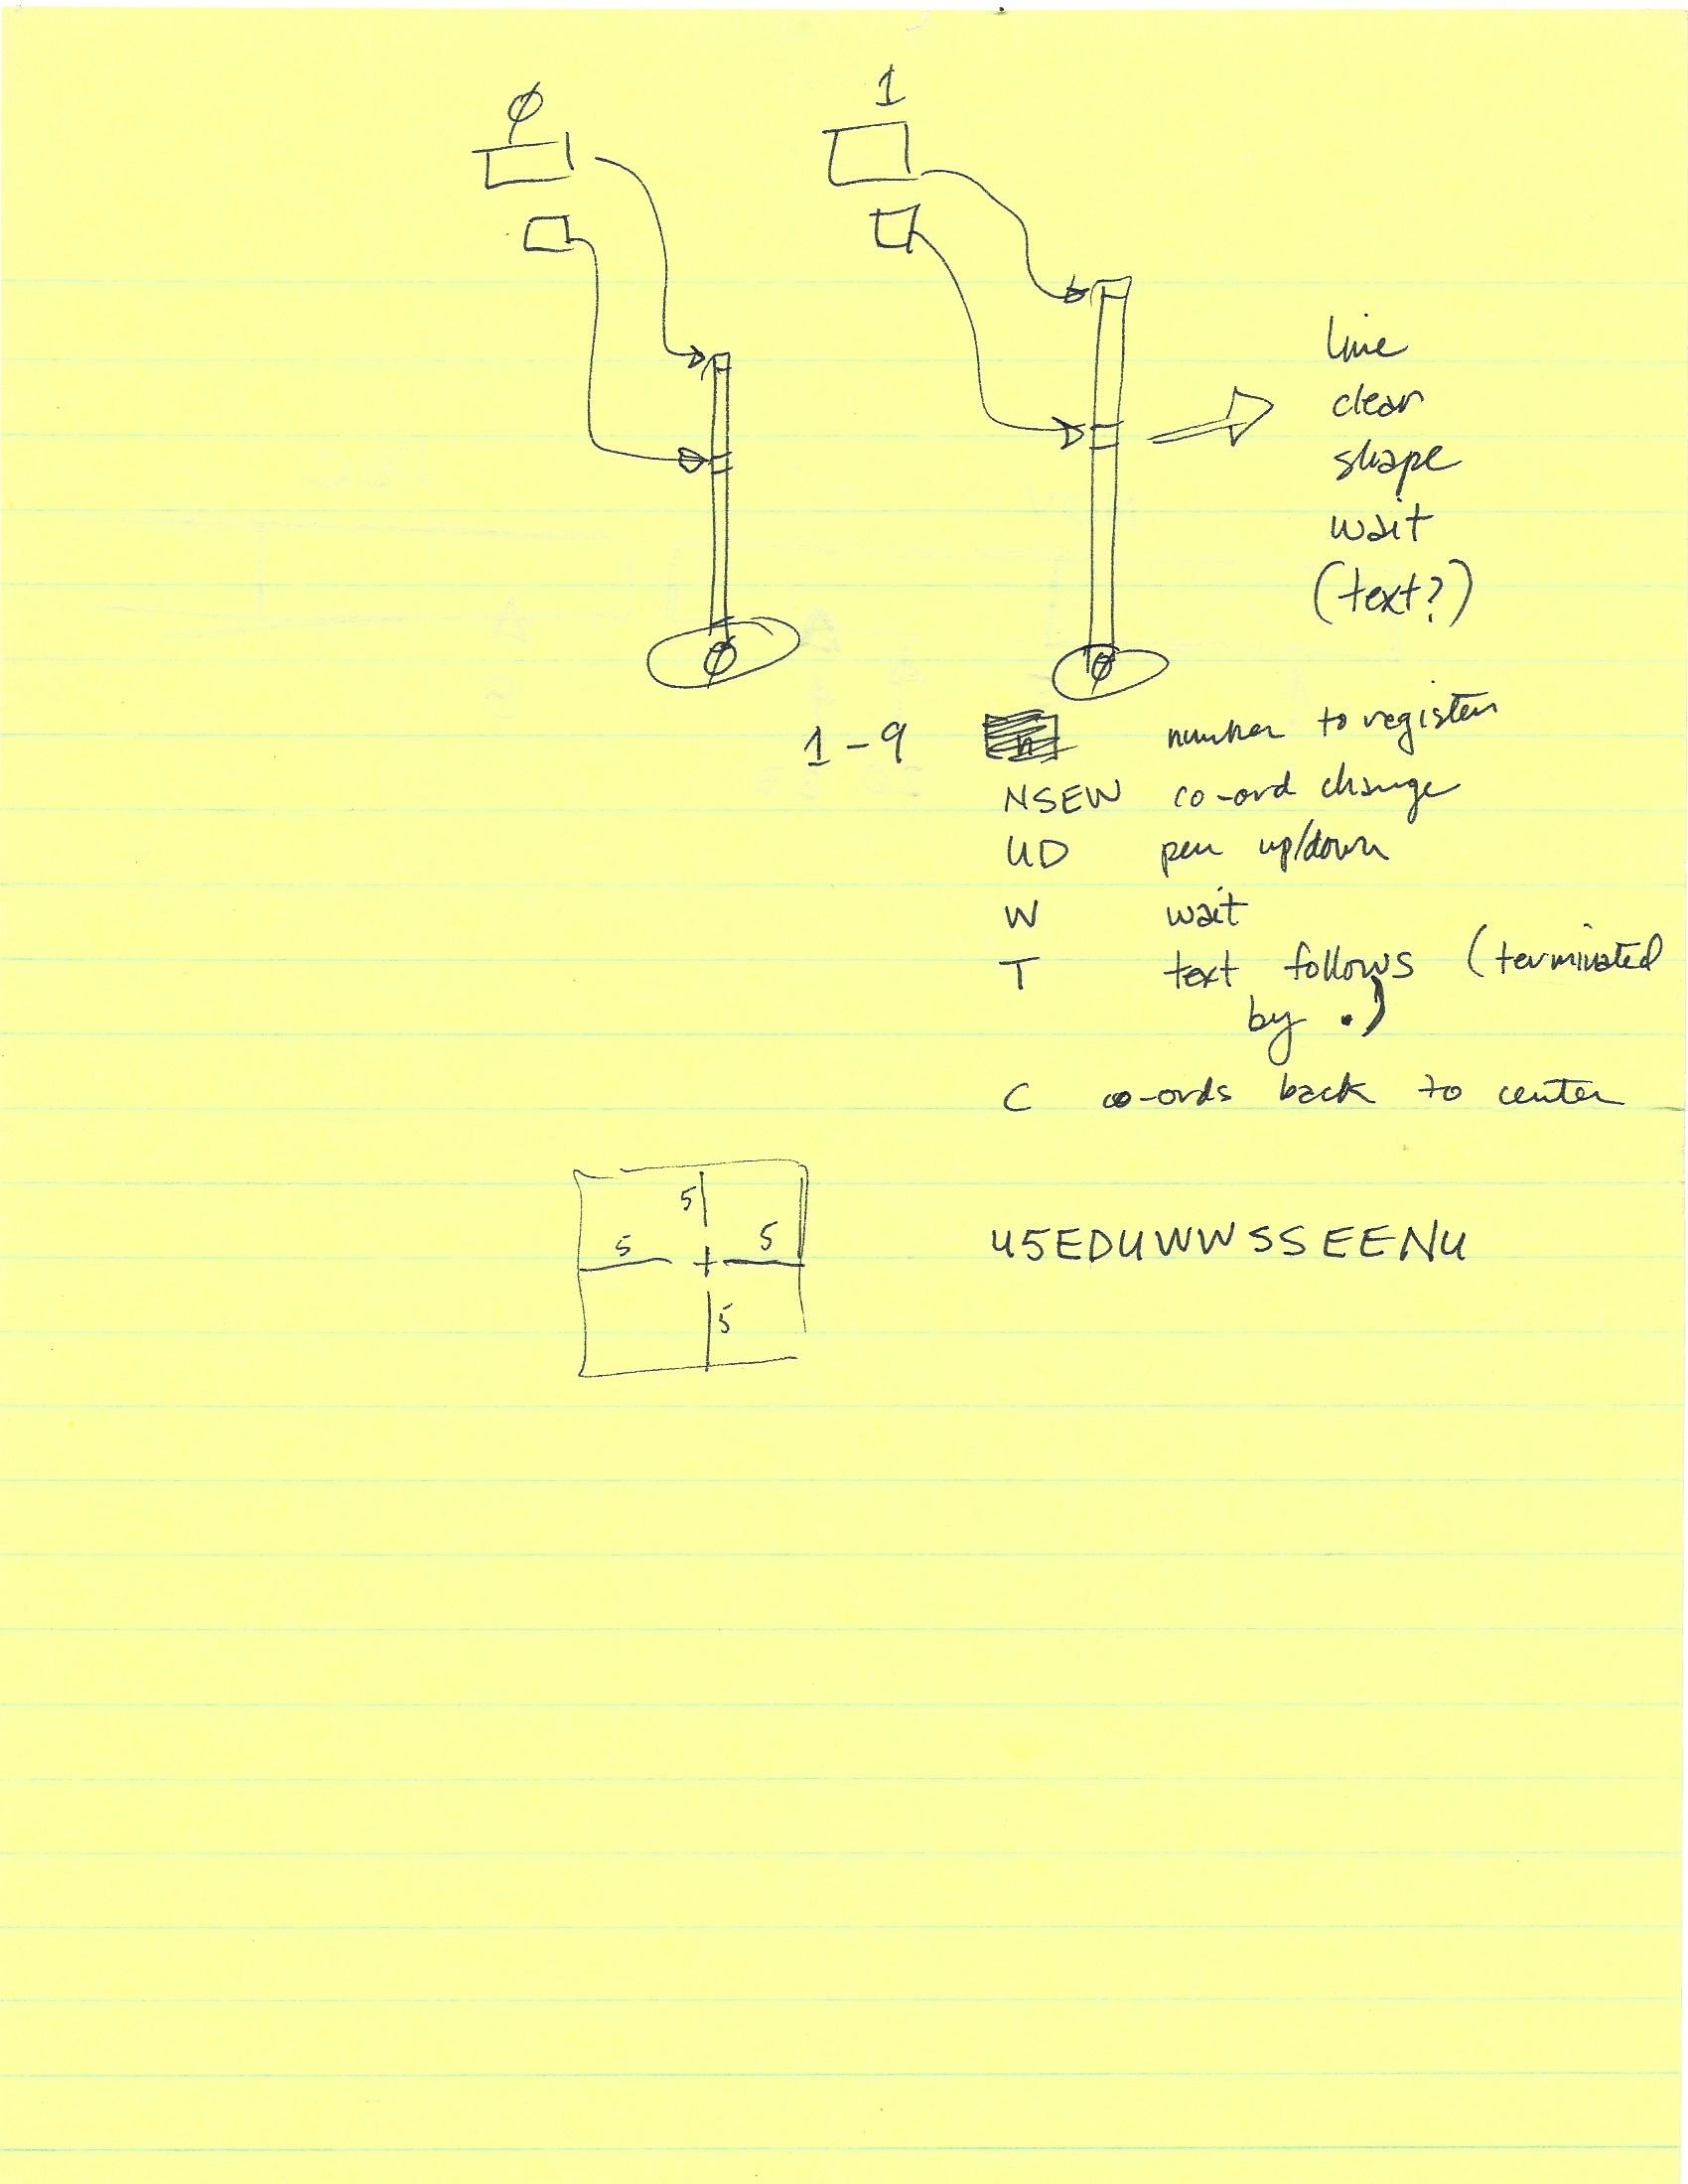 ∅
1
line
clear
shape
wait
(text?)
∅
∅
1-9 number to register
NSEW co-ord change
UD pen up/down
W wait
T text follows (terminated
by .)
C co-ords back to center
5
5 5
5
U5EDUWWSSEENU